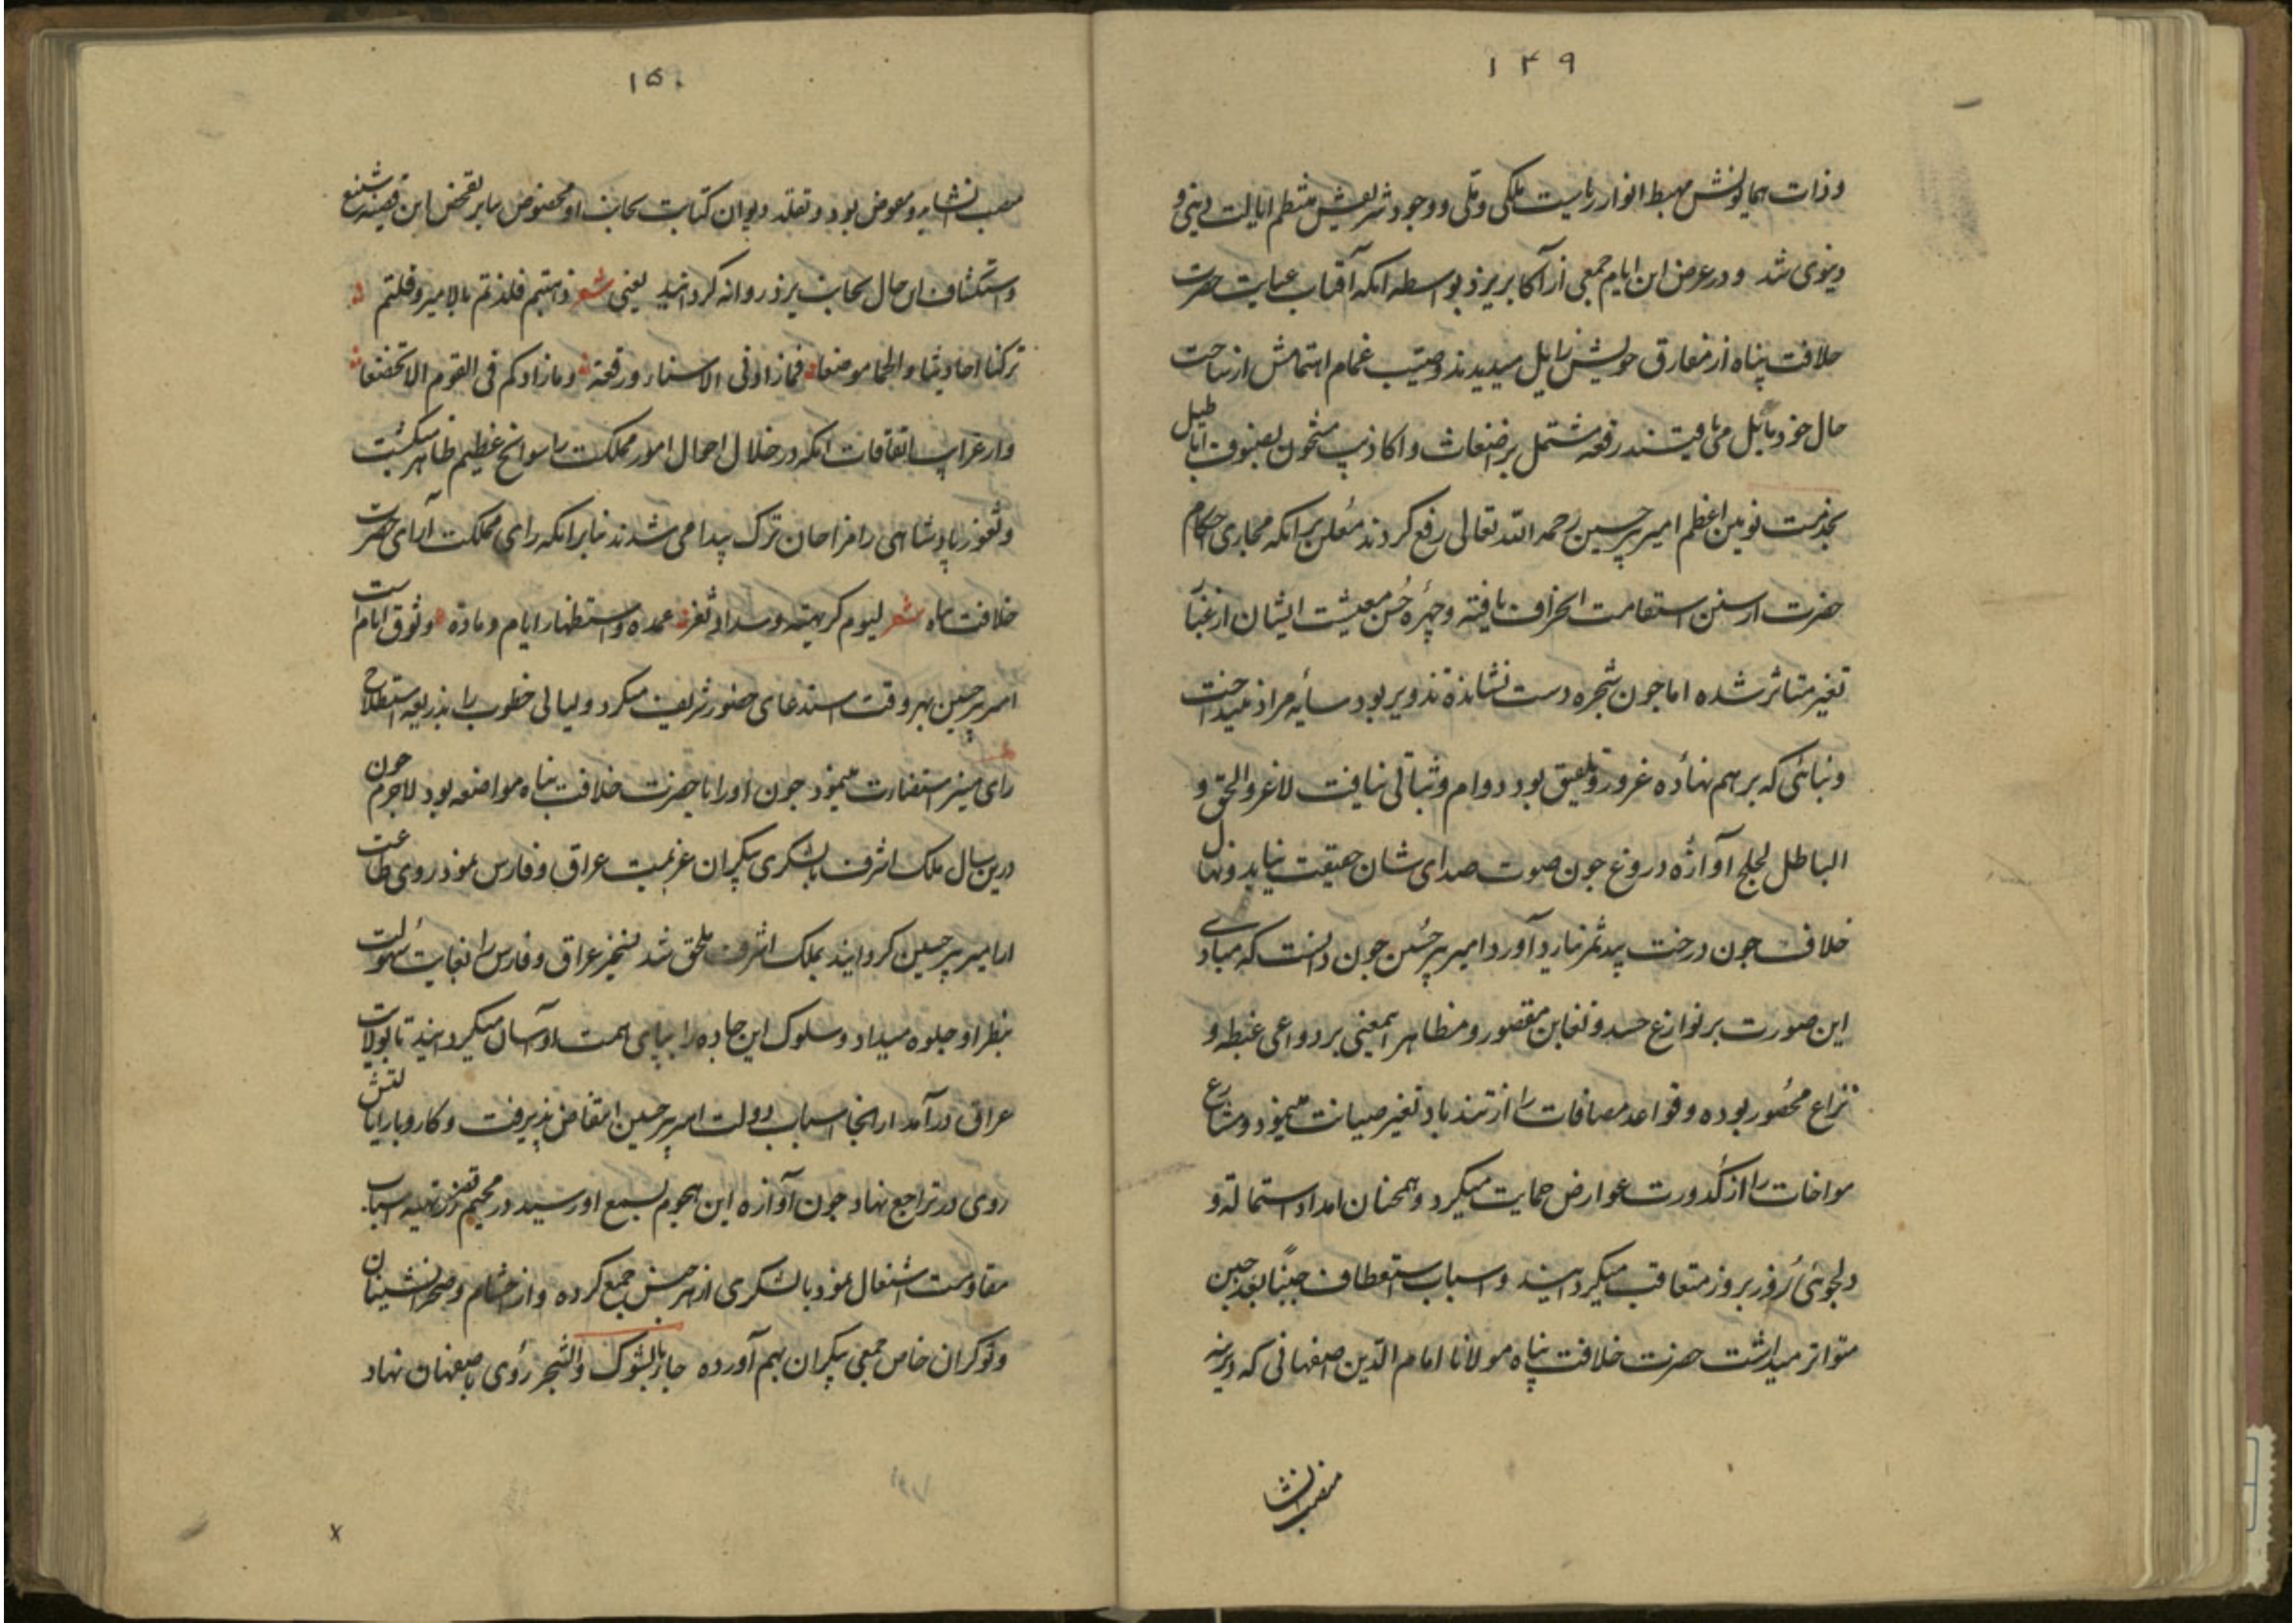 ۱۴۹
و ذات همایونش مهبط انوار ریاست ملکی و ملی و وجود شریفش منتظم ایالت دینی و
دنیوی شد و در عرض این ایام جمعی از اکابر یزد بواسطه انکه آفتاب عنایت حضرت
خلافت پناه از مفارق خویش زایل میدیدند و صیب غمام اهتمامش از ساحت
حال خود مایل می یافتند رقعه مشتمل بر ضغاث و اکاذیب مشحون بصنوف اباطیل
بخدمت نوین اعظم امیر پیر حسین رحمه الله تعالی رفع کردند معلن برانکه مجاری احکام
حضرت از سنن استقامت انحراف یافته و چهره حسن معیشت ایشان از غبار
تغیر متاثر شده اما جون شجره دست نشانده تذویر بود سایه مراد نینداخت
و بنائی که بر هم نهاده غرور و تلفیق بود دوام و ثباتی نیافت لاغرو الحق و
الباطل لجلج آوازه دروغ جون صوت صدای شان حقیقت نیابد و نهال
خلاف جون درخت بید ثمر نیارد آورد امیر پیر حسین جون دانست که مبادی
این صورت بر نوازع حسد و تغابن مقصور و مظاهر این معنی بر دواعی غبطه و
نزاع محصور بوده و قواعد مصافات را از تند باد تغیر صیانت مینمود و مشارع
مواخات را از کدورت عوارض حمایت میکرد و همچنان امداد استمالة و
دلجوئی روز بروز متعاقب میکردانید و اسباب استعطاف حیناً بعد حین
متواتر میداشت حضرت خلافت پناه مولانا امام الدین اصفهانی که دیرینه
منصب انشا
۱۵۰
منصب انشا برو مفوض بود و تقلد دیوان کتابت بجانب او مخصوص بنا بر تفحص این قضیه شنیع
و استکشاف این حال بجانب یزد روانه کردانید یعنی شعر فلذتم بالامیر و قلتم
ترکنا احادیثا و لحما موضعا فمازادنی الا سناء و رفعة و مازادکم فی القوم الا تخضعا
و از غرایب اتفاقات انکه در خلال احوال امور مملکت را سوانح عظیم ظاهر میکشت
و ثغور پادشاهی را مزاحمان ترک پیدا می شدند بنابرانکه رای مملکت آرای حضرت
خلافت پناه شعر لیوم کریهة و سداد ثغر عمده و استظهار ایام و ماده وثوق ایام است
امیر پیر حسین بهر وقت استدعای حضور شریف میکرد و لیالی خطوب را بذریعه استطلاع
رای منیر استضاءت مینمود جون او را با حضرت خلافت پناه مواضعه بود لاجرم جون
درین سال ملک اشرف با لشکری بیکران عزیمت عراق و فارس نمود روی طاعت
از امیر پیر حسین کردانید بملک اشرف ملحق شد تسخیر عراق و فارس را بغایت سهولت
بنظر او جلوه میداد و سلوک این جاده را بپای همت او آسان میکردانید تا بولایت
عراق درآمد از انجا اسباب دولت امیر پیر حسین انتقاض پذیرفت و کار و بار ایالتش
روی در تراجع نهاد جون آوازه این هجوم بسمع او رسید در مخیم تغزز تهیه اسباب
مقاومت اشتغال نمود با لشکری از هر جنس جمع کرده و از حشام و صحرانشینان
و نوکران خاص جمعی بیکران بهم آورده جاز بالشوک و الشجر روی باصفهان نهاد